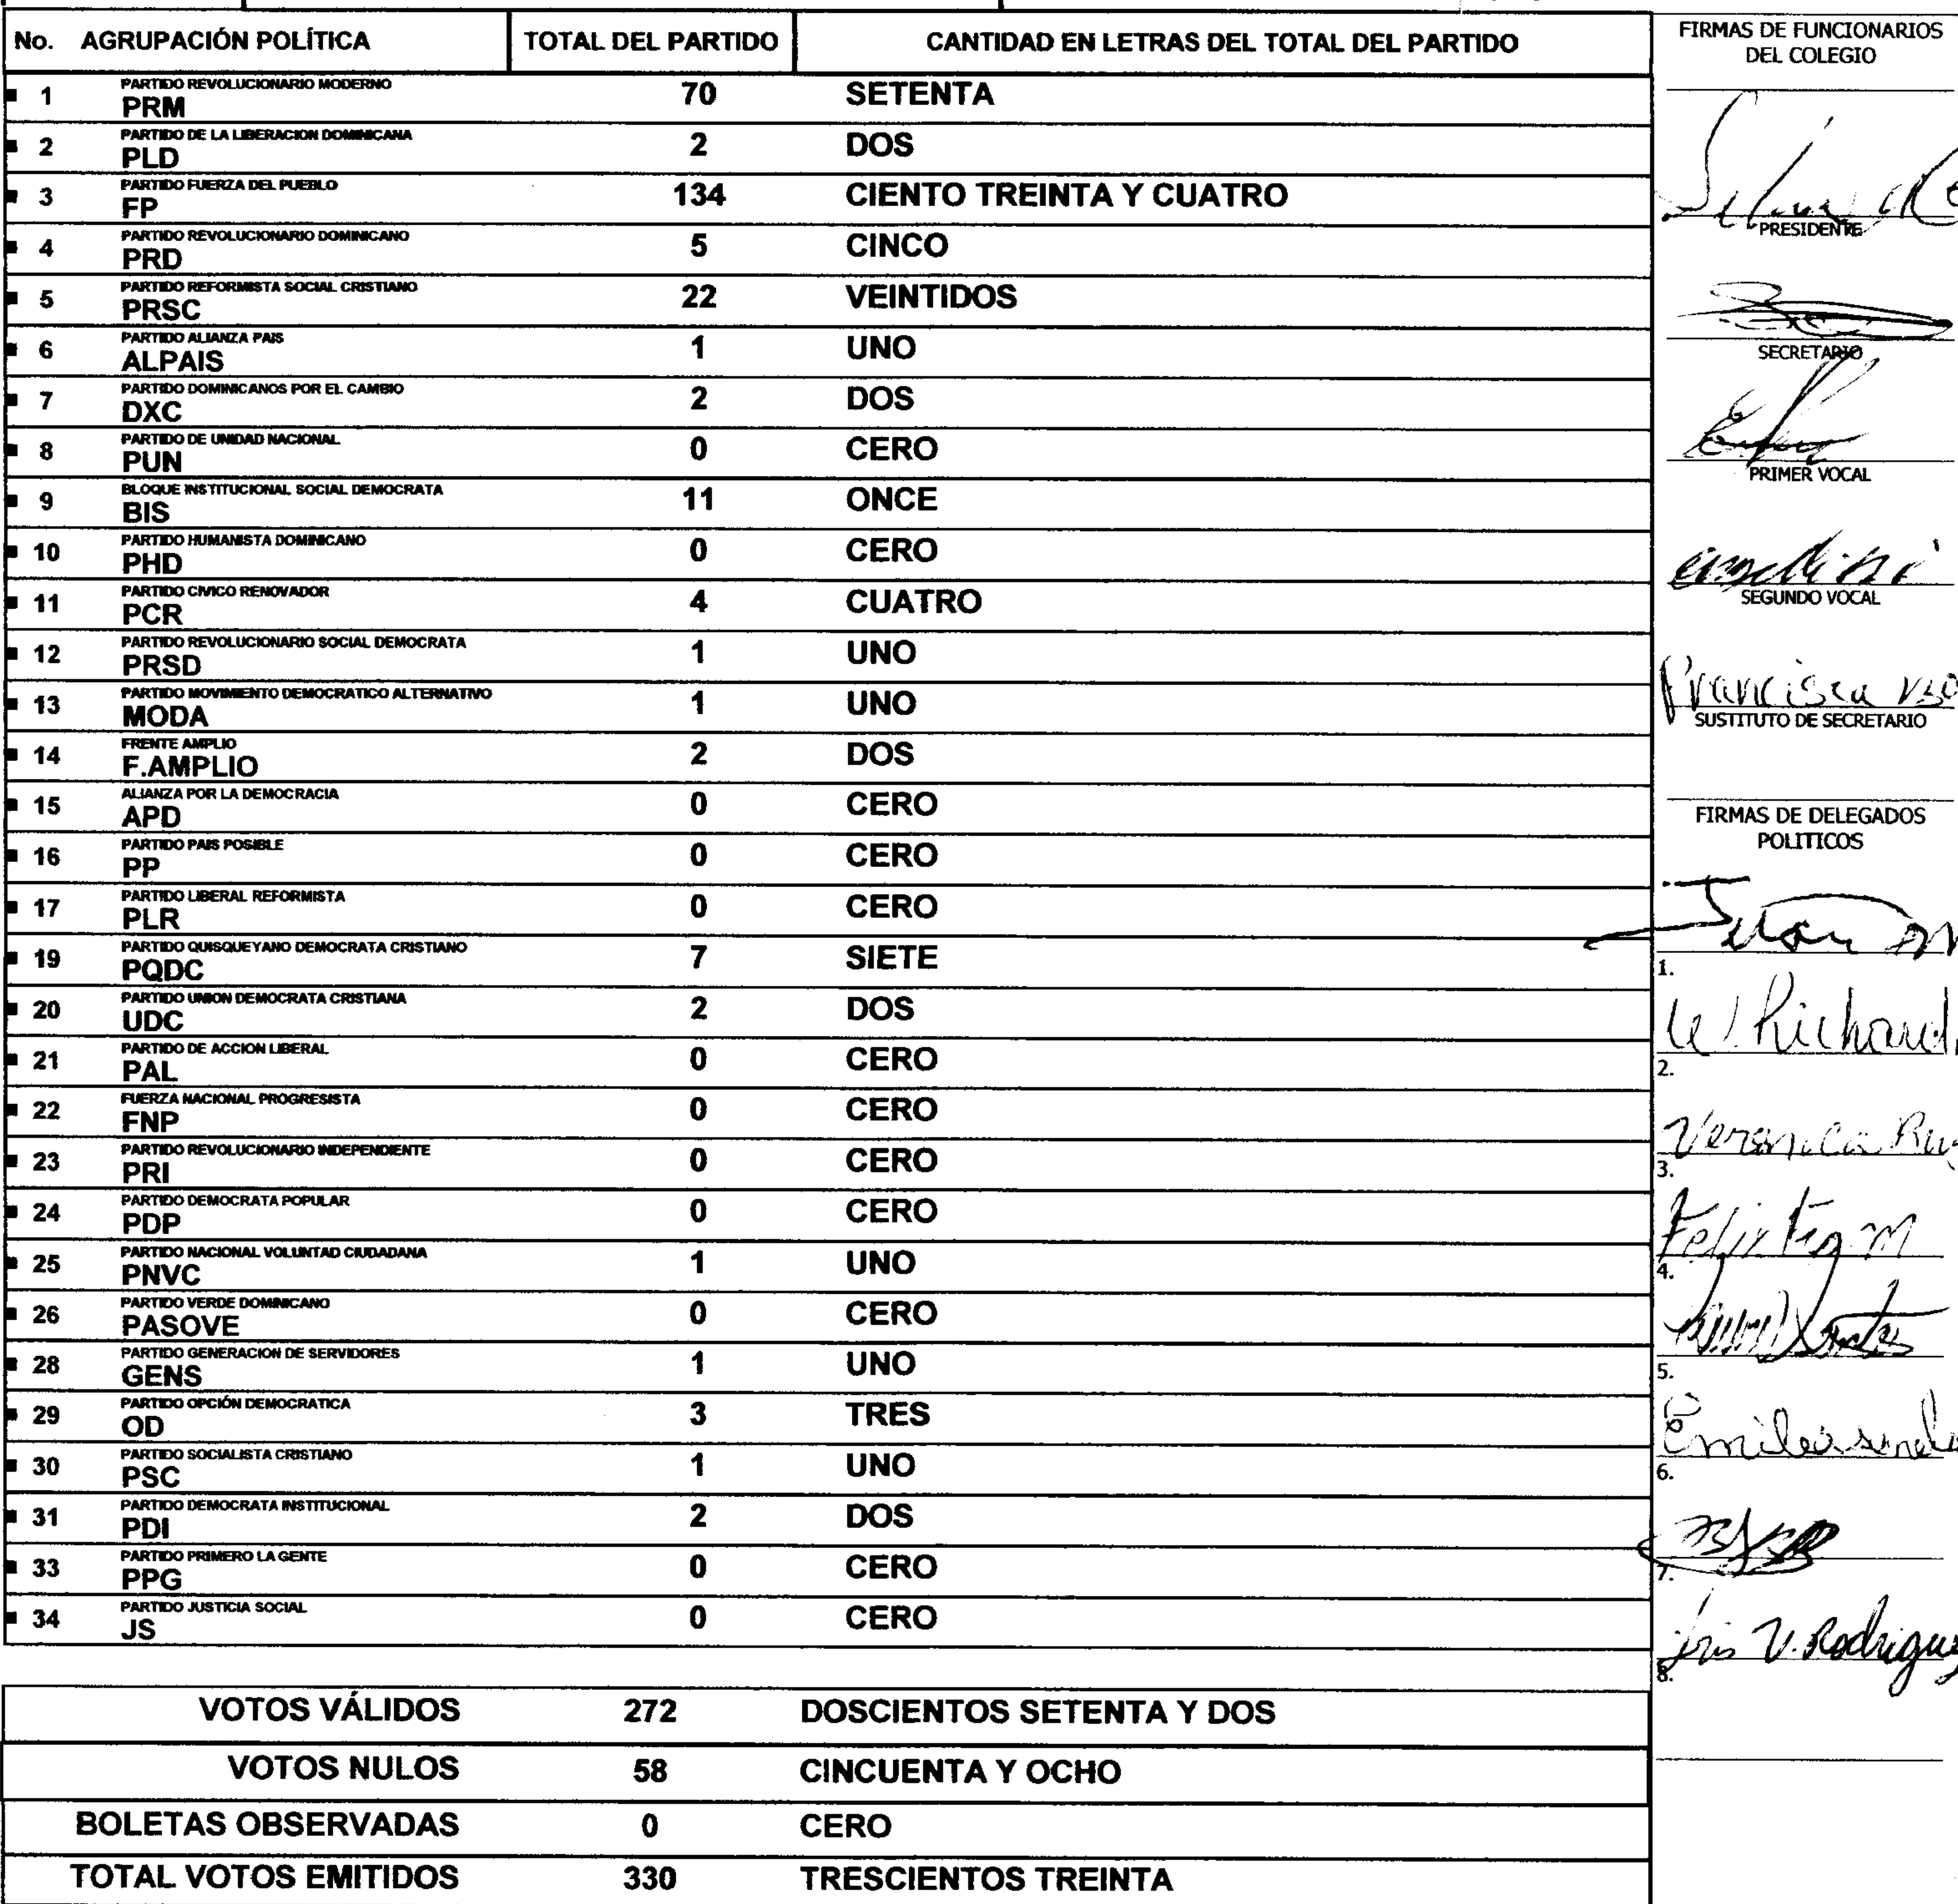 No. AGRUPACIÓN POLÍTICA TOTAL DEL PARTIDO CANTIDAD EN LETRAS DEL TOTAL DEL PARTIDO
PARTIDO REVOLUCIONARIO MODERNO
1 PRM 70 SETENTA
PARTIDO DE LA LIBERACION DOMINICANA
2 PLD 2 DOS
PARTIDO FUERZA DEL PUEBLO
3 FP 134 CIENTO TREINTA Y CUATRO
PARTIDO REVOLUCIONARIO DOMINICANO
4 PRD 5 CINCO
PARTIDO REFORMISTA SOCIAL CRISTIANO
5 PRSC 22 VEINTIDOS
PARTIDO ALIANZA PAIS
6 ALPAIS 1 UNO
PARTIDO DOMINICANOS POR EL CAMBIO
7 DXC 2 DOS
PARTIDO DE UNIDAD NACIONAL
8 PUN 0 CERO
BLOQUE INSTITUCIONAL SOCIAL DEMOCRATA
9 BIS 11 ONCE
PARTIDO HUMANISTA DOMINICANO
10 PHD 0 CERO
PARTIDO CIVICO RENOVADOR
11 PCR 4 CUATRO
PARTIDO REVOLUCIONARIO SOCIAL DEMOCRATA
12 PRSD 1 UNO
PARTIDO MOVIMIENTO DEMOCRATICO ALTERNATIVO
13 MODA 1 UNO
FRENTE AMPLIO
14 F.AMPLIO 2 DOS
ALIANZA POR LA DEMOCRACIA
15 APD 0 CERO
PARTIDO PAIS POSIBLE
16 PP 0 CERO
PARTIDO LIBERAL REFORMISTA
17 PLR 0 CERO
PARTIDO QUISQUEYANO DEMOCRATA CRISTIANO
19 PQDC 7 SIETE
PARTIDO UNION DEMOCRATA CRISTIANA
20 UDC 2 DOS
PARTIDO DE ACCION LIBERAL
21 PAL 0 CERO
FUERZA NACIONAL PROGRESISTA
22 FNP 0 CERO
PARTIDO REVOLUCIONARIO INDEPENDIENTE
23 PRI 0 CERO
PARTIDO DEMOCRATA POPULAR
24 PDP 0 CERO
PARTIDO NACIONAL VOLUNTAD CIUDADANA
25 PNVC 1 UNO
PARTIDO VERDE DOMINICANO
26 PASOVE 0 CERO
PARTIDO GENERACION DE SERVIDORES
28 GENS 1 UNO
PARTIDO OPCIÓN DEMOCRATICA
29 OD 3 TRES
PARTIDO SOCIALISTA CRISTIANO
30 PSC 1 UNO
PARTIDO DEMOCRATA INSTITUCIONAL
31 PDI 2 DOS
PARTIDO PRIMERO LA GENTE
33 PPG 0 CERO
PARTIDO JUSTICIA SOCIAL
34 JS 0 CERO
VOTOS VÁLIDOS 272 DOSCIENTOS SETENTA Y DOS
VOTOS NULOS 58 CINCUENTA Y OCHO
BOLETAS OBSERVADAS 0 CERO
TOTAL VOTOS EMITIDOS 330 TRESCIENTOS TREINTA
FIRMAS DE FUNCIONARIOS
DEL COLEGIO
PRESIDENTE
SECRETARIO
PRIMER VOCAL
SEGUNDO VOCAL
Francisca
SUSTITUTO DE SECRETARIO
FIRMAS DE DELEGADOS
POLITICOS
1.
W. Richard
2.
Veronica
3.
Felix
4.
5.
6.
7.
Iris V. Rodriguez
8.